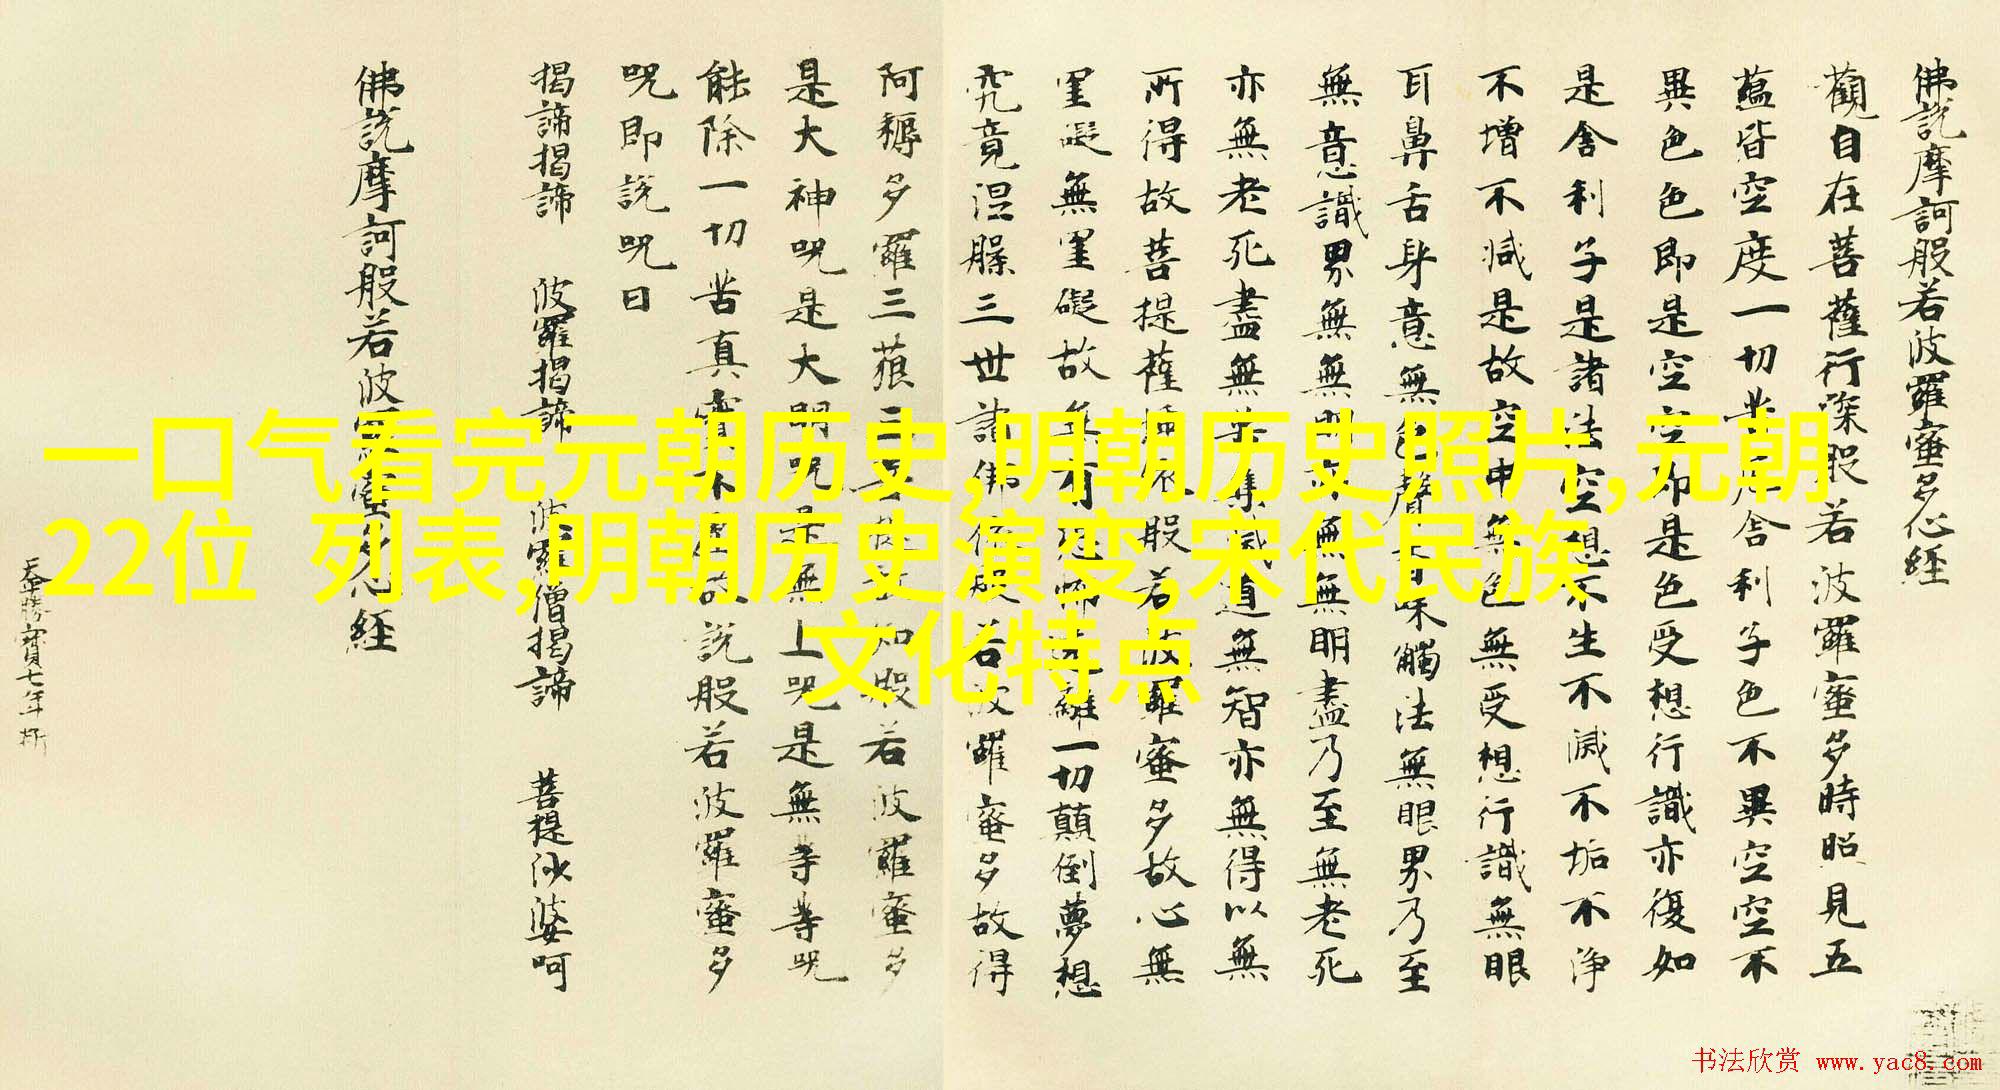 佛說摩訶般若波羅蜜多心經
觀自在菩薩行深般若波羅蜜多時照見五
蘊皆空度一切苦厄舍利子色不異空空不
異色色即是空空即是色受想行識亦復如
是舍利子是諸法空想不生不滅不垢不淨
不增不減是故空中無色無受想行識無眼
耳鼻舌身意無色聲香味觸法無眼界乃至
無意識界無無明亦無無明盡乃至無老死
亦無老死盡無苦集滅道無智亦無得以無
所得故菩提薩埵依般若波羅蜜多故心無
罣礙無罣礙故無有恐怖遠離一切顛倒夢想
究竟涅槃三世諸佛依般若波羅蜜多故得
阿耨多羅三藐三菩提故知般若波羅蜜多
是大神呪是大明呪是無上呪是無等等呪
能除一切苦真實不虛故說般若波羅蜜多
呪即說呪曰
揭諦揭諦 波羅揭諦 波羅僧揭諦 菩提沙婆呵
佛說摩訶般若波羅蜜多心經
勝寶七年
一口气看完元朝历史,明朝历史照片,元朝
22位 列表,明朝历史演变,宋代民族
文化特点
书法欣赏 www.yac8.com